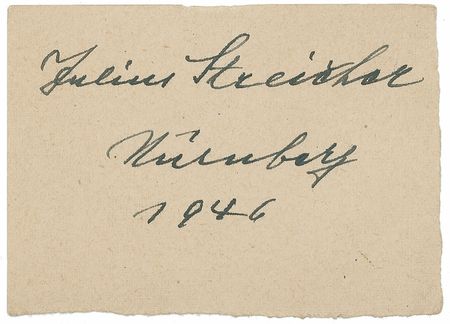 Julius Streicher
Nürnberg
1946